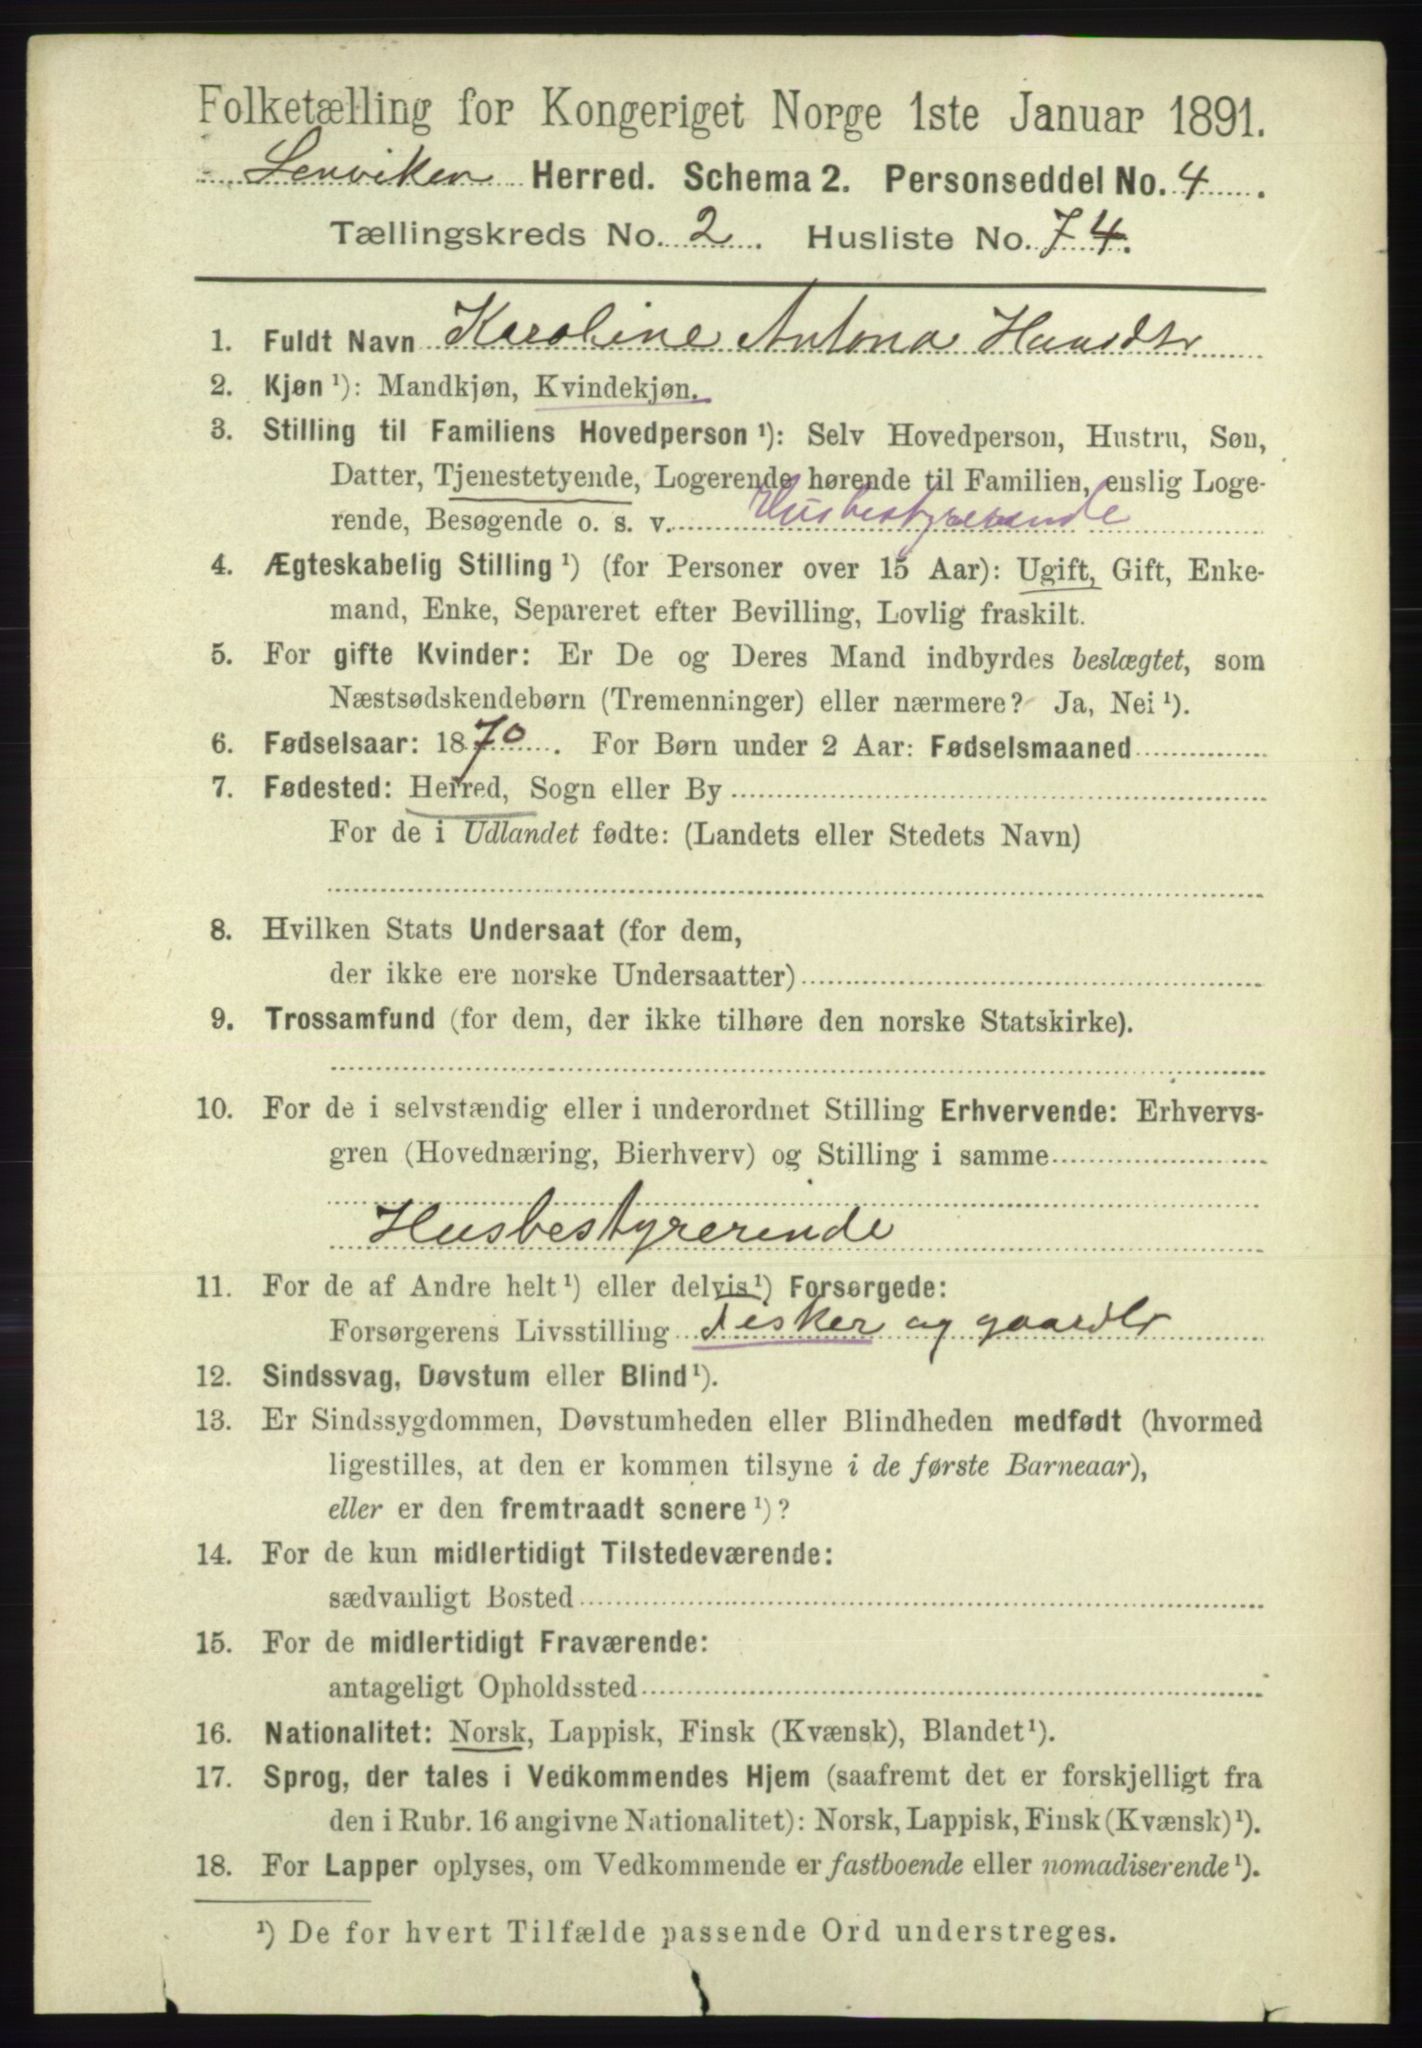 Folketælling for Kongeriget Norge 1ste Januar 1891.
Lenviken Herred. Schema 2. Personseddel No. 4.
Tællingskreds No. 2. Husliste No. 74.
1. Fuldt Navn Karoline Antona
2. Kjøn ¹): Mandkjøn, Kvindekjøn.
3. Stilling til Familiens Hovedperson ¹): Selv Hovedperson, Hustru, Søn,
Datter, Tjenestetyende, Logerende hørende til Familien, enslig Loge-
rende, Besøgende o. s. v. Husbestyrerende
4. Ægteskabelig Stilling ¹) (for Personer over 15 Aar): Ugift, Gift, Enke-
mand, Enke, Separeret efter Bevilling, Lovlig fraskilt.
5. For gifte Kvinder: Er De og Deres Mand indbyrdes beslægtet, som
Næstsødskendebørn (Tremenninger) eller nærmere? Ja, Nei ¹).
6. Fødselsaar: 1870. For Børn under 2 Aar: Fødselsmaaned
7. Fødested: Herred, Sogn eller By
For de i Udlandet fødte: (Landets eller Stedets Navn)
8. Hvilken Stats Undersaat (for dem,
der ikke ere norske Undersaatter)
9. Trossamfund (for dem, der ikke tilhøre den norske Statskirke).
10. For de i selvstændig eller i underordnet Stilling Erhvervende: Erhvervs-
gren (Hovednæring, Bierhverv) og Stilling i samme
Husbestyrerinde
11. For de af Andre helt ¹) eller delvis ¹) Forsørgede:
Forsørgerens Livsstilling Fisker og gaardbr
12. Sindssvag, Døvstum eller Blind ¹).
13. Er Sindssygdommen, Døvstumheden eller Blindheden medfødt (hvormed
ligestilles, at den er kommen tilsyne i de første Barneaar),
eller er den fremtraadt senere ¹)?
14. For de kun midlertidigt Tilstedeværende:
sædvanligt Bosted
15. For de midlertidigt Fraværende:
antageligt Opholdssted
16. Nationalitet: Norsk, Lappisk, Finsk (Kvænsk), Blandet ¹).
17. Sprog, der tales i Vedkommendes Hjem (saafremt det er forskjelligt fra
den i Rubr. 16 angivne Nationalitet): Norsk, Lappisk, Finsk (Kvænsk) ¹).
18. For Lapper oplyses, om Vedkommende er fastboende eller nomadiserende ¹).
¹) De for hvert Tilfælde passende Ord understreges.